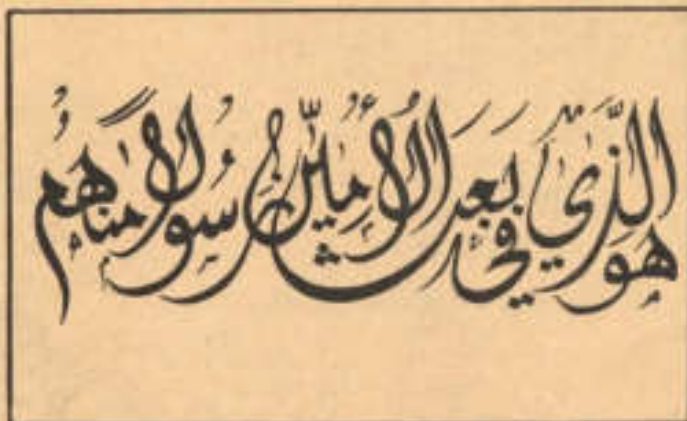 هُوَ الَّذِي بَعَثَ فِي الْأُمِّيِّينَ رَسُولًا مِنْهُمْ